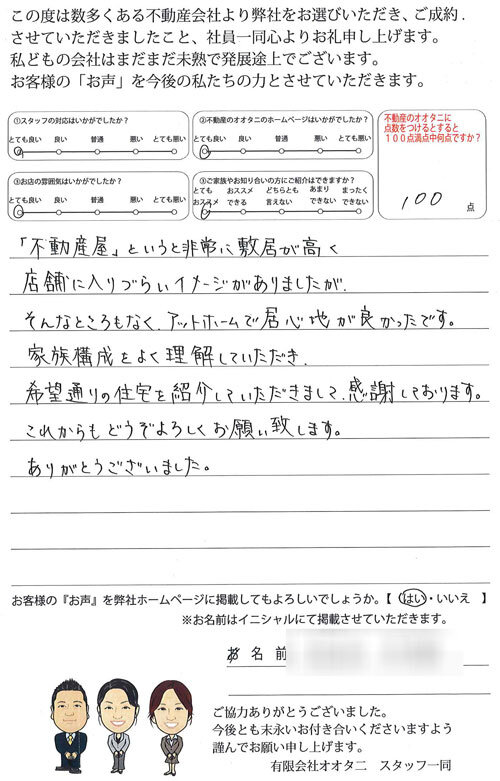 この度は数多くある不動産会社より弊社をお選びいただき、ご成約.
させていただきましたこと、社員一同心よりお礼申し上げます。
私どもの会社はまだまだ未熟で発展途上でございます。
お客様の「お声」を今後の私たちの力とさせていただきます。
①スタッフの対応はいかがでしたか?
とても良い 良い 普通 悪い とても悪い
②不動産のオオタニのホームページはいかがでしたか?
とても良い 良い 普通 悪い とても悪い
③お店の雰囲気はいかがでしたか?
とても良い 良い 普通 悪い とても悪い
③ご家族やお知り合いの方にご紹介はできますか?
とても オススメ どちらとも あまり まったく
おススメ できる 言えない できない できない
不動産のオオタニに
点数をつけるとすると
100点満点中何点ですか?
100 点
「不動産屋」というと非常に敷居が高く
店舗に入りづらいイメージがありましたが、
そんなところもなく、アットホームで居心地が良かったです。
家族構成をよく理解していただき、
希望通りの住宅を紹介していただきまして、感謝しております。
これからもどうぞよろしくお願い致します。
ありがとうございました。
お客様の『お声』を弊社ホームページに掲載してもよろしいでしょうか。【 はい・いいえ 】
※お名前はイニシャルにて掲載させていただきます。
お名前
ご協力ありがとうございました。
今後とも末永いお付き合いくださいますよう
謹んでお願い申し上げます。
有限会社オオタニ スタッフ一同